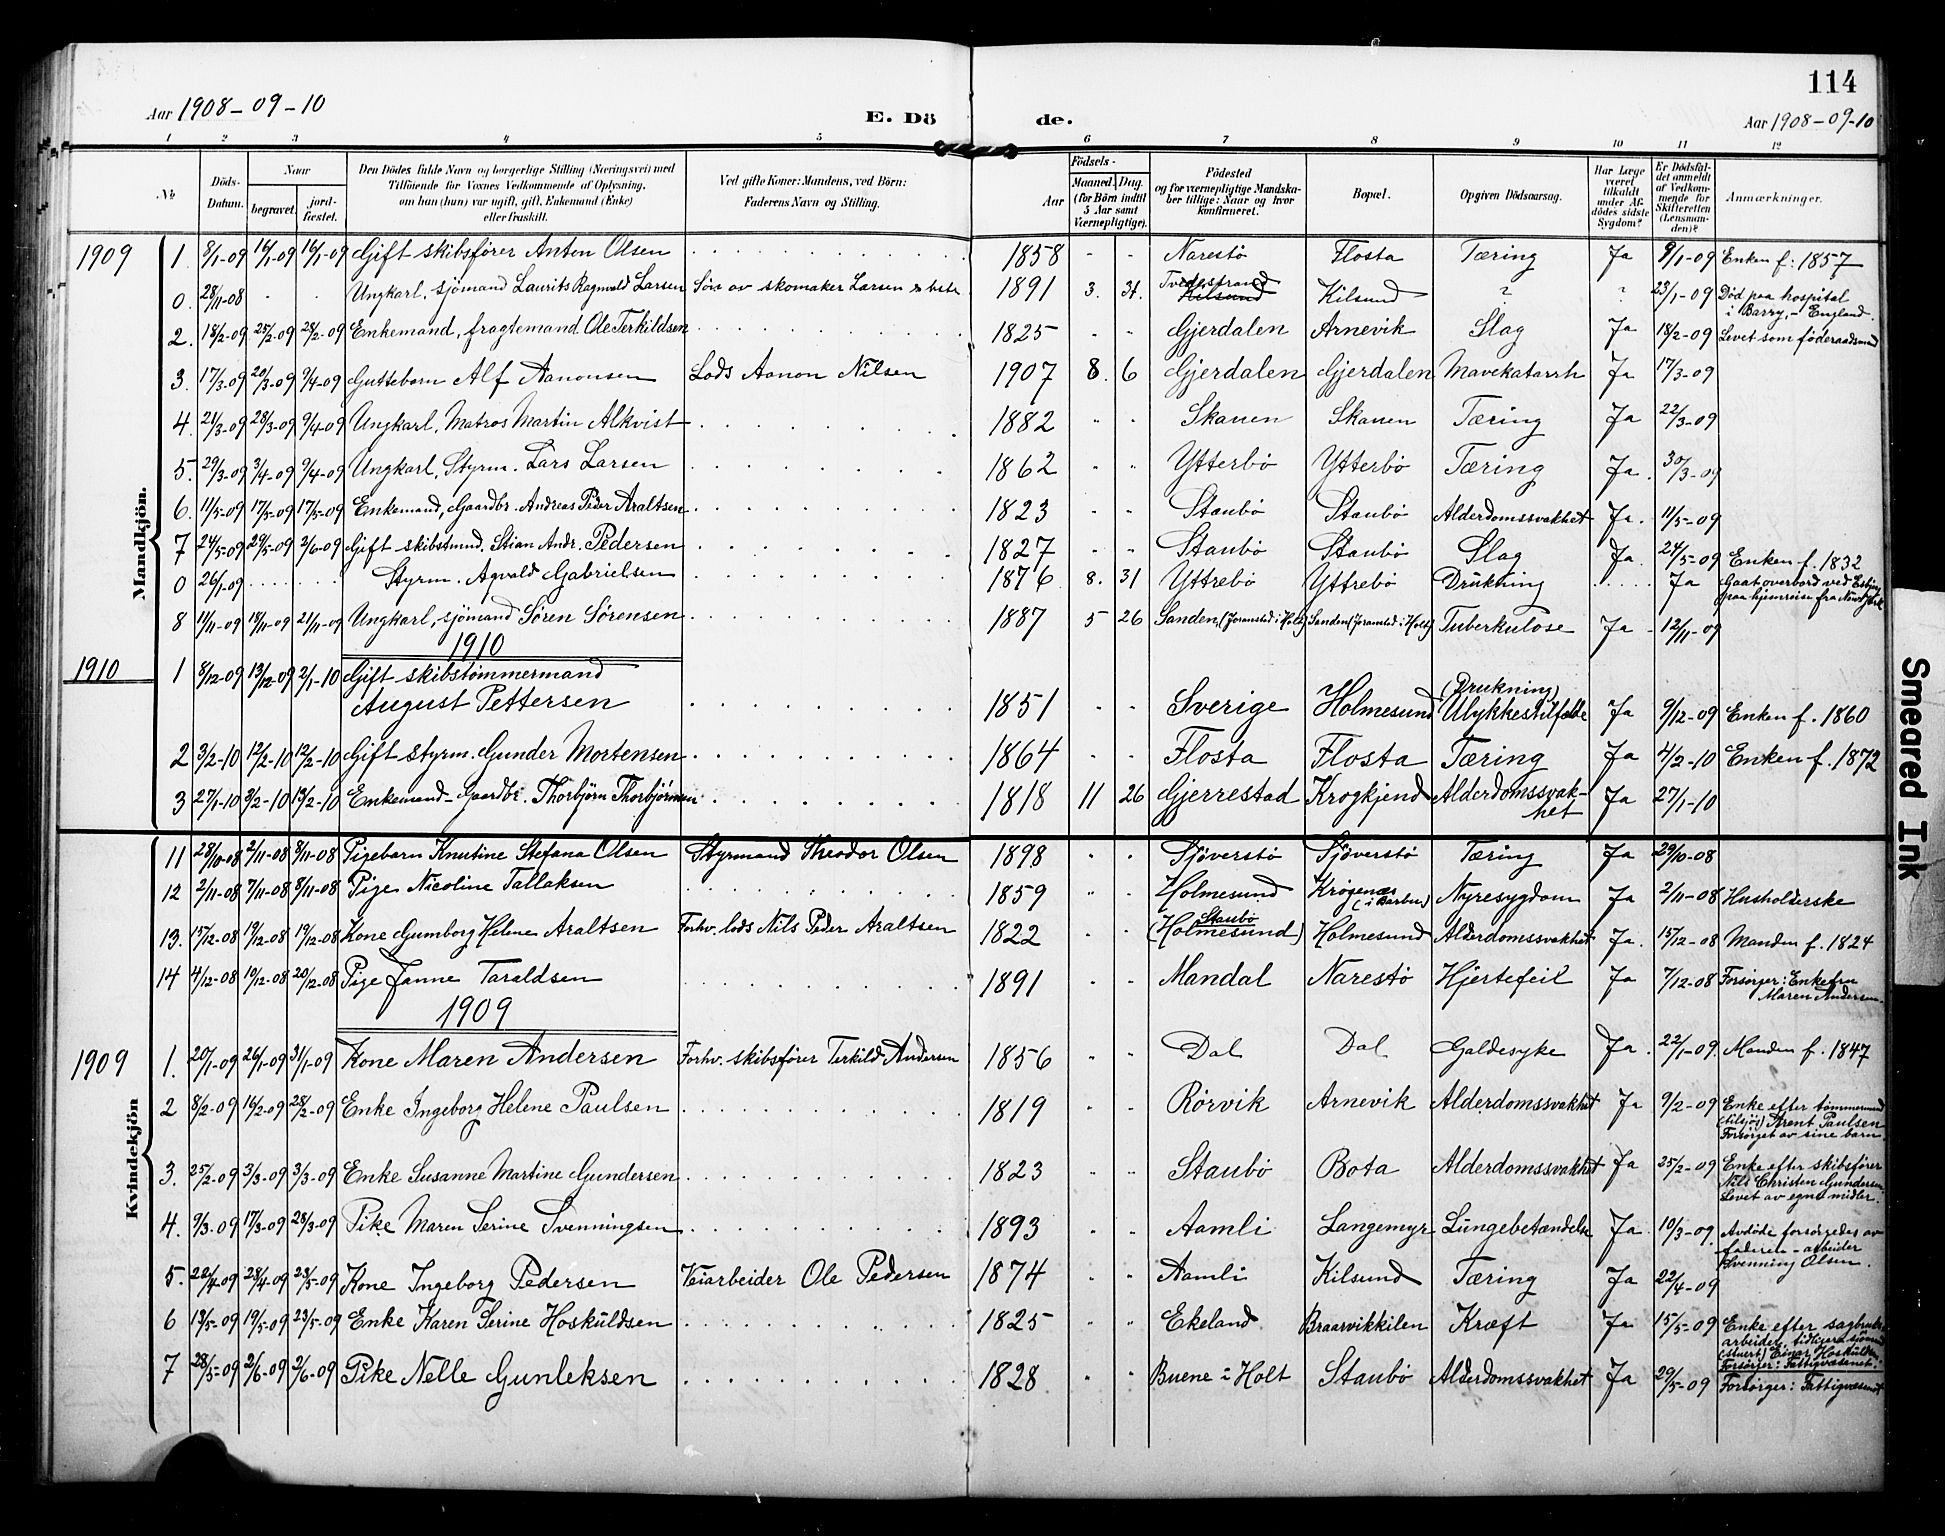 114
Aar 1908-09-10
E. Dö de.
Aar 1908-09-10
1 2 3 4 5 6 7 8 9 10 11 12
No
Döds-Datum.
Naar begravet. jord-fæstet.
Den Dödes fulde Navn og borgerlige Stilling (Næringsvei) med Tilföiende for Voxnes Vedkommende af Oplysning, om hun (hun) var ugift, gift, Enkemand (Enke) eller fraskilt.
Ved gifte Koner: Mandens, ved Börn: Faderens Navn og Stilling.
Födsels-
Aar Maaned. Dag. (for Börn indtil 5 Aar samt Værnepligtige).
Födested og for værnepligtige Mandskaber tillige: Naar og hvor konfirmeret.
Bopæl.
Opgiven Dödsaarsag.
Har Læge været tilkaldt under Afdödes sidste Sygdom?
Er Dödsfaldet anmeldt af Vedkommende for Skifteretten (Lensmanden)?
Anmærkninger.
Mandkjön.
1909 1. 8/1-09 16/1-09 16/1-09 Gift skibsfører Anton Olsen 1858 - - Narestø Flosta Tæring Ja 9/1-09 Enken f. 1857
0. 28/11-08 . . Ungkarl, sjömand Laurits Ragnvald Larsen Søn av skomaker Larsen 1891 3. 31. Tvedestrand Kilsund Kilsund ? ? 23/1-09 Død paa hospital i Barry, - England.
2. 18/2-09 25/2-09 28/2-09 Enkemand, fragtemand Ole Terkildsen 1825 " " Gjerdalen Arnevik Slag Ja 18/2-09 Levet som föderaadsmand
3. 17/3-09 20/3-09 9/4-09 Guttebarn Alf Aanonsen Lods Aanon Nilsen 1907 8. 6 Gjerdalen Gjerdalen Mavekatarrh Ja 17/3-09
4. 21/3-09 28/3-09 9/4-09 Ungkarl, Matros Martin Alkvist 1882 " " Skauen Skauen Tæring Ja 22/3-09
5. 29/3-09 3/4-09 9/4-09 Ungkarl, Styrm. Lars Larsen 1862 " " Ytterbø Ytterbø Tæring Ja. 30/3-09
6. 11/5-09 17/5-09 17/5-09 Enkemand, Gaardbr. Andreas Peder Araltsen 1823 " " Staubø Staubø Alderdomssvakhet Ja. 11/5-09
7 24/5-09 29/5-09 2/6-09 Gift skibstmd. Stian Andr. Pedersen 1827 " " Staubø Staubø Slag Ja. 24/5-09 Enken f. 1832
0 26/1-09 Styrm. Agvald Gabrielsen 1876 8. 31 Yttrebø Yttrebø Drukning Ja Gaat overbord ved Esbjerg paa hjemreise fra New York
8 11/11-09 18/11-09 21/11-09 Ungkarl, sjömand Søren Sørensen 1887 5 26 Sanden (Joramstad i Holt) Sanden (Joramstad i Holt) Tuberkulose Ja - 12/11-09
1910
1910 1 8/12-09 13/12-09 2/1-10 Gift skibstømmermand
August Pettersen 1851 " " Sverige Holmesund (Drukning) Ulykkestilfælde Ja 9/12-09 Enken f. 1860
2 3/2-10 12/2-10 12/2-10 Gift styrm. Gunder Mortensen 1864 " " Flosta Flosta Tæring Ja 4/2-10 Enken f. 1872
3 27/1-10 3/2-10 13/2-10 Enkemand - Gaardbr. Thorbjörn Thorbjörnsen 1818 11 26 Gjerrestad Krogkjend Alderdomssvak-het Ja 27/1-10
Kvindekjön
11 28/10-08 2/11-08 8/11-08 Pigebarn Knutine Stefana Olsen Styrmand Theodor Olsen 1898 " " Sjöverstö Sjöverstö Tæring Ja 29/10-08
12 2/11-08 7/11-08 8/11-08 Pige Nicoline Tallaksen 1859 " " Holmesund Krøgenæs (i Barbu) Nyresygdom Ja 2/11-08 Husholderske
13. 15/12-08 19/12-08 19/12-08 Kone Gumborg Helene Araltsen Forhv. lods Nils Peder Araltsen 1822 " " Staubø (Holmesund) Holmesund Alderdomssvakhet Ja. 15/12-08 Manden f. 1824
14 4/12-08 10/12-08 20/12-08 Pige Janne Taraldsen 1891 " " Mandal Narestö Hjertefeil Ja 7/12-08 Forsörger: Enkefru Maren Andersen.
1909
1909 1. 20/1-09 26/1-09 31/1-09 Kone Maren Andersen Forhv. skibsfører Terkild Andersen 1856 " " Dal Dal Galdesyke Ja. 22/1-09. Manden f. 1847
2 8/2-09 16/2-09 28/2-09 Enke Ingeborg Helene Paulsen 1819 " " Rörvik Arnevik Alderdomssvakhet Ja 9/2-09 Enke efter tömmermand (tilsjös) Arent Paulsen Forsörget av sine barn
3. 25/2-09 3/3-09 3/3-09 Enke Susanne Martine Gundersen 1823 " " Staubø Bota Alderdomssvakhet Ja 25/2-09 Enke efter skibsfører Nils Christen Gundersen Levet av egne midler.
4. 9/3-09 17/3-09 28/3-09 Pike Maren Serine Svenningsen 1893 " " Aamli Langemyr Lungebetændelse Ja 10/3-09. Avdöde forsörgedes av faderen - arbeider Svenning Olsen.
5. 22/4-09 28/4-09 23/5-09 Kone Ingeborg Pedersen Veiarbeider Ole Pedersen 1874 " " Aamli Kilsund Tæring Ja 22/4-09
6 13/5-09 19/5-09 23/5-09 Enke Karen Serine Hoskuldsen 1825 " " Ekeland Braarvikkilen Kræft Ja 15/5-09 Enke efter sagbruks arbeider, tidligere sjömand (stuert) Einar Hoskuldsen. Forsörger: Fattigvæsenet.
7 28/5-09 2/6-09 2/6-09 Pike Nelle Gunleksen 1828 " " Buene i Holt Staubø Alderdomssvakhet Ja 29/5-09 Forsörger: Fattigvæsenet
Smeared Ink